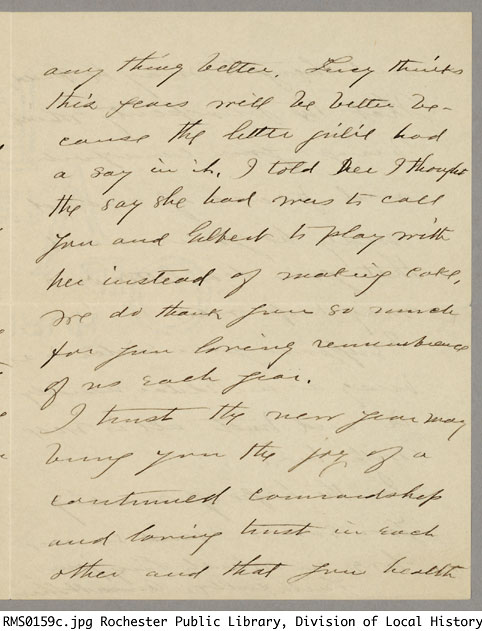 any thing better. Lucy thinks
this years will be better be-
cause the little girlie had
a say in it. I told her I thought
the say she had was to call
you and Gilbert to play with
her instead of making cake,
we do thank you so much
for your loving remembrence
of us each year.
I trust the new year may
bring you the joy of a
continued comradship
and loving trust in each
other and that your health
RMS0159c.jpg Rochester Public Library, Division of Local History